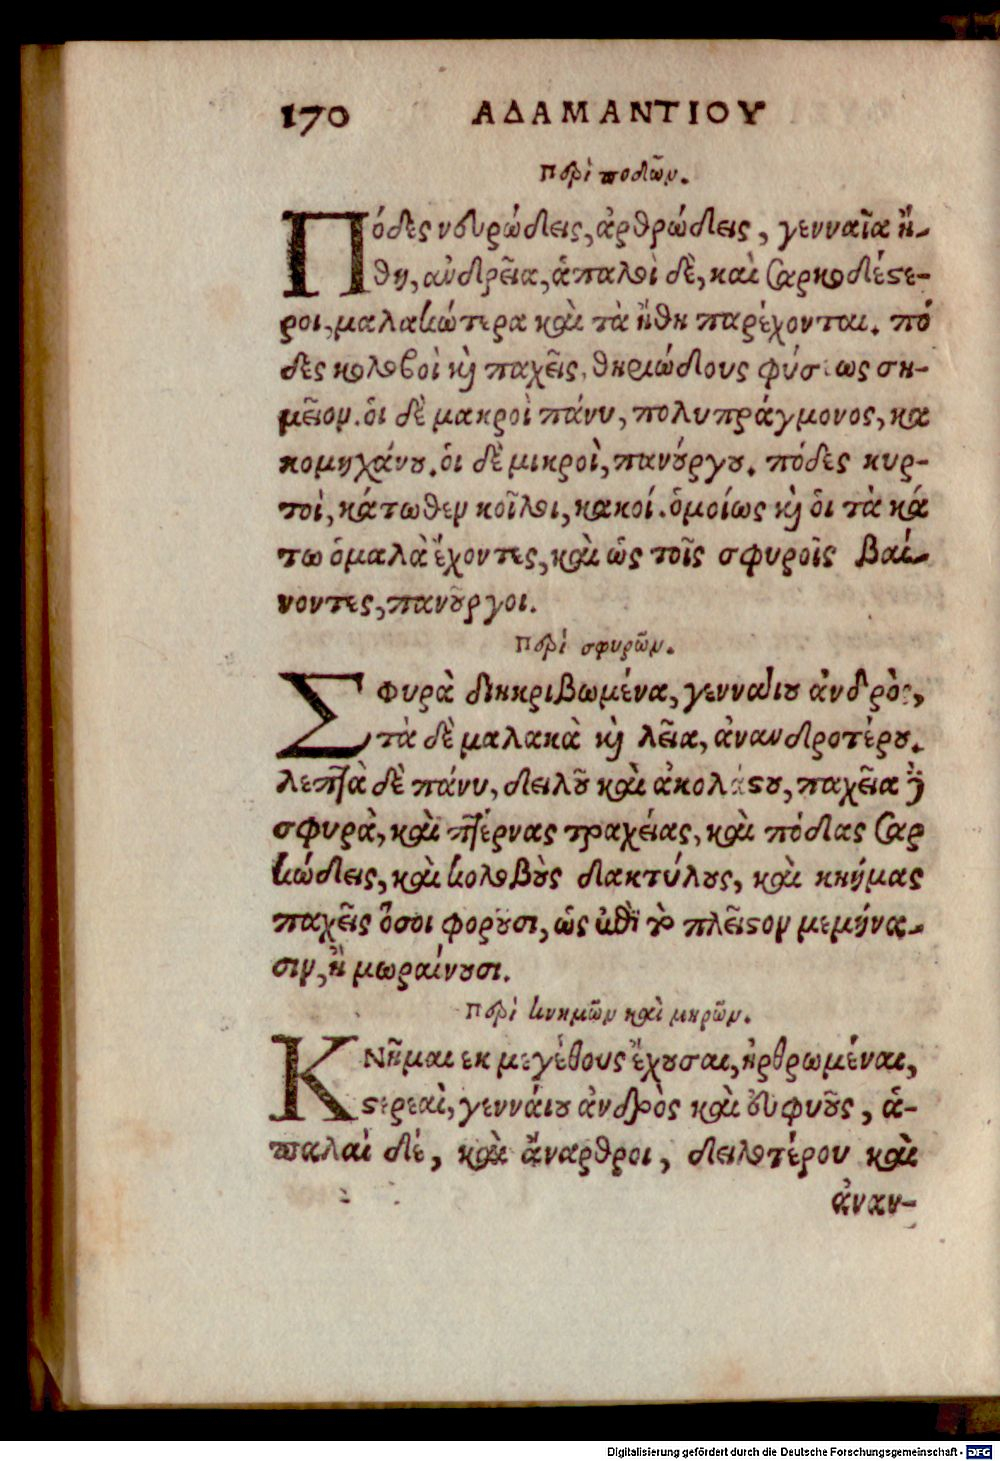 170 ΑΔΑΜΑΝΤΙΟΥ
Περὶ ποδῶν.
Πόδες νευρώδεις, ἀρθρώδεις, γενναῖα ἤ-
θη, ἀνδρεῖα, ἁπαλοὶ δὲ, καὶ σαρκοδέστε-
ροι, μαλακώτερα καὶ τὰ ἤθη παρέχονται. πό
δες κολοβοὶ καὶ παχεῖς, θηριώδους φύσεως ση-
μεῖον. οἱ δὲ μακροὶ πάνυ, πολυπράγμονος, κα
κομηχάνου. οἱ δὲ μικροὶ, πανούργου. πόδες κυρ-
τοὶ, κάτωθεν κοῖλοι, κακοί. ὁμοίως καὶ οἱ τὰ κά
τω ὁμαλὰ ἔχοντες, καὶ ὡς τοῖς σφυροῖς βαί-
νοντες, πανοῦργοι.
Περὶ σφυρῶν.
Σφυρὰ διηκριβωμένα, γενναίου ἀνδρὸς,
τὰ δὲ μαλακὰ καὶ λεῖα, ἀνανδροτέρου.
λεπτὰ δὲ πάνυ, δειλοῦ καὶ ἀκολάστου, παχεῖα δὲ
σφυρὰ, καὶ πτέρνας τραχείας, καὶ πόδας σαρ
κώδεις, καὶ κολοβοὺς δακτύλους, καὶ κνήμας
παχεῖς ὅσοι φοροῦσι, ὡς ἐπὶ τὸ πλεῖστον μεμήνα-
σιν, ἢ μωραίνουσι.
Περὶ κνημῶν καὶ μηρῶν.
Κνῆμαι εκ μεγέθους ἔχουσαι, ἠρθρωμέναι,
στερεαὶ, γενναίου ἀνδρὸς καὶ εὐφυοῦς, ἁ-
παλαὶ δὲ, καὶ ἄναρθροι, δειλοτέρου καὶ
ἀναν-
Digitalisierung gefördert durch die Deutsche Forschungsgemeinschaft - DFG